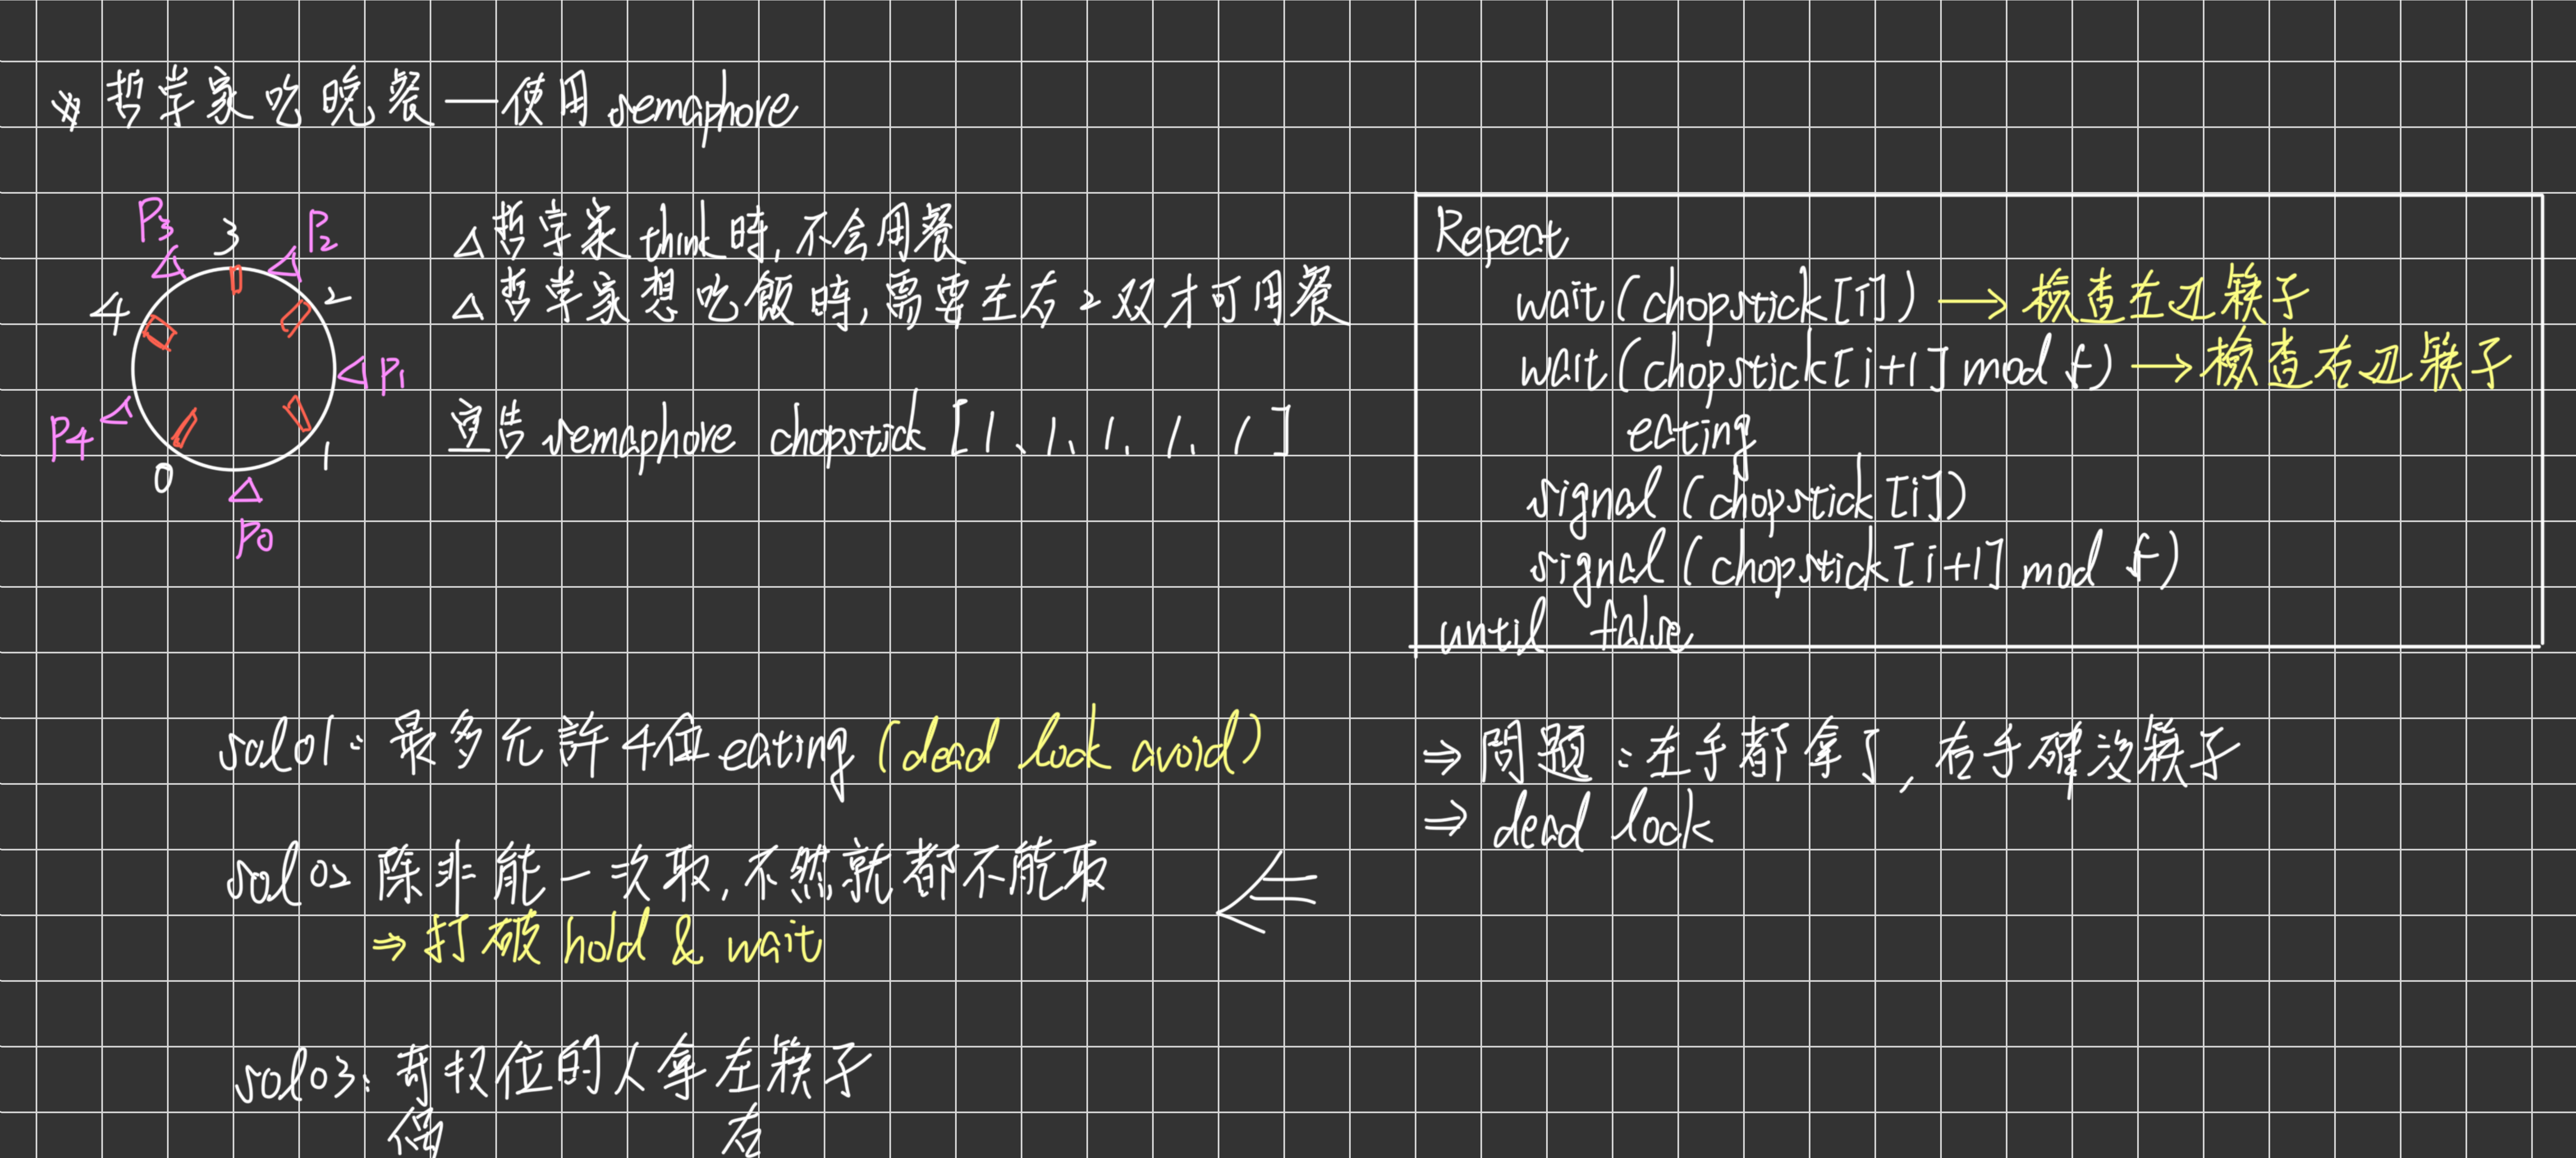 * 哲学家吃晚餐—使用semaphore
P3 3 P2
4 2
P1
P4
0 1
P0
△哲学家think時,不会用餐
△哲学家想吃飯時,需要左右2双才可用餐
宣告semaphore chopstick [1、1、1、1、1]
Repeat
wait(chopstick[i]) → 檢查左边筷子
wait(chopstick[i+1] mod 5) → 檢查右边筷子
eating
signal (chopstick[i])
signal (chopstick[i+1] mod 5)
until false
⇒ 問題:左手都拿了,右手確沒筷子
⇒ dead lock
sol01: 最多允許4位eating (dead lock avoid)
sol02 除非能一次取,不然就都不能取
⇒ 打破 hold & wait
sol03: 奇数位的人拿左筷子
偶 右